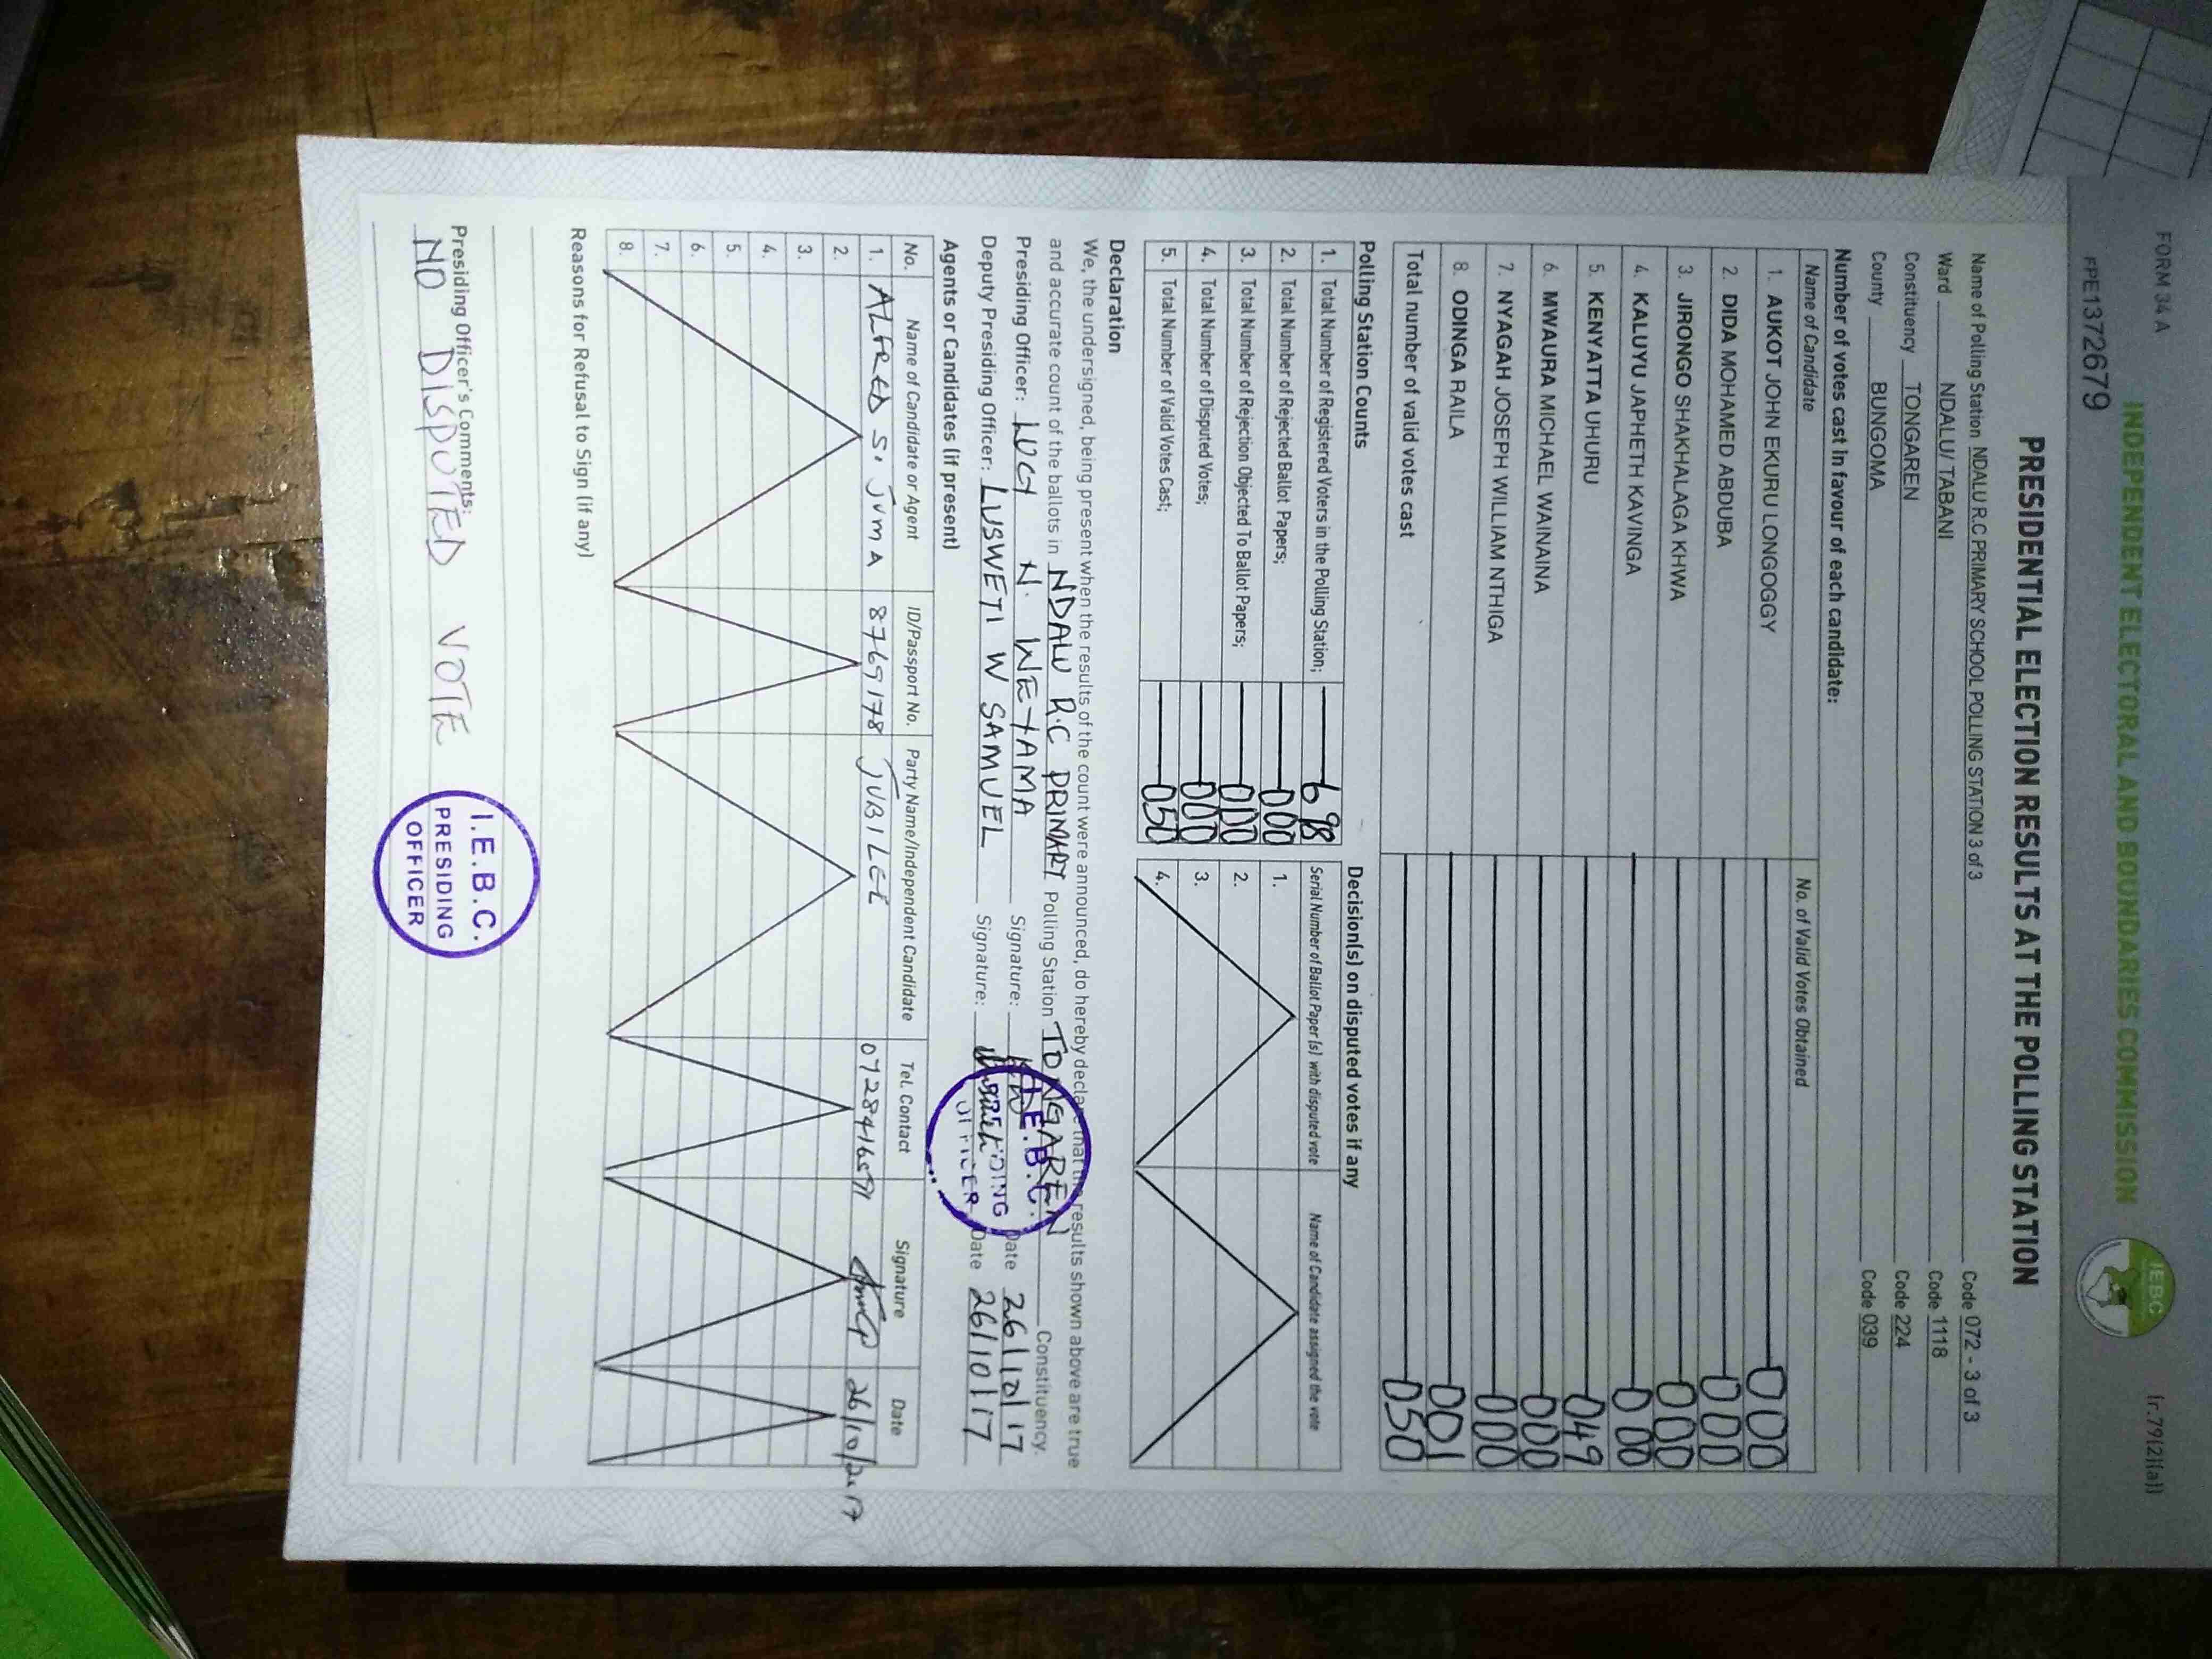 FORM 34 A
(r.79(2)(a))
INDEPENDENT ELECTORAL AND BOUNDARIES COMMISSION
IEBC
FPE1372679
PRESIDENTIAL ELECTION RESULTS AT THE POLLING STATION
Name of Polling Station NDALU R.C PRIMARY SCHOOL POLLING STATION 3 of 3 Code 072 - 3 of 3
Ward NDALU/ TABANI Code 1118
Constituency TONGAREN Code 224
County BUNGOMA Code 039
Number of votes cast in favour of each candidate:
Name of Candidate No. of Valid Votes Obtained
1. AUKOT JOHN EKURU LONGOGGY 000
2. DIDA MOHAMED ABDUBA 000
3. JIRONGO SHAKHALAGA KHWA 000
4. KALUYU JAPHETH KAVINGA 000
5. KENYATTA UHURU 049
6. MWAURA MICHAEL WAINAINA 000
7. NYAGAH JOSEPH WILLIAM NTHIGA 000
8. ODINGA RAILA 001
Total number of valid votes cast 050
Polling Station Counts
1. Total Number of Registered Voters in the Polling Station; 698
2. Total Number of Rejected Ballot Papers; 000
3. Total Number of Rejection Objected To Ballot Papers; 000
4. Total Number of Disputed Votes; 000
5. Total Number of Valid Votes Cast; 050
Decision(s) on disputed votes if any
Serial Number of Ballot Paper (s) with disputed vote Name of Candidate assigned the vote
1.
2.
3.
4.
Declaration
We, the undersigned, being present when the results of the count were announced, do hereby declare that the results shown above are true
and accurate count of the ballots in NDALU R.C PRIMARY Polling Station TONGAREN Constituency.
Presiding Officer: LUCY N. WEYAMA Signature: Date 26/10/17
Deputy Presiding Officer: LUSWETI W SAMUEL Signature: Date 26/10/17
I.E.B.C.
PRESIDING
OFFICER
Agents or Candidates (if present)
No. Name of Candidate or Agent ID/Passport No. Party Name/Independent Candidate Tel. Contact Signature Date
1. ALFRED S. JUMA 8769178 JUBILEE 26/10/2017
2.
3.
4.
5.
6.
7.
8.
Reasons for Refusal to Sign (if any)
Presiding Officer's Comments:
NO DISPUTED VOTE
I.E.B.C.
PRESIDING
OFFICER